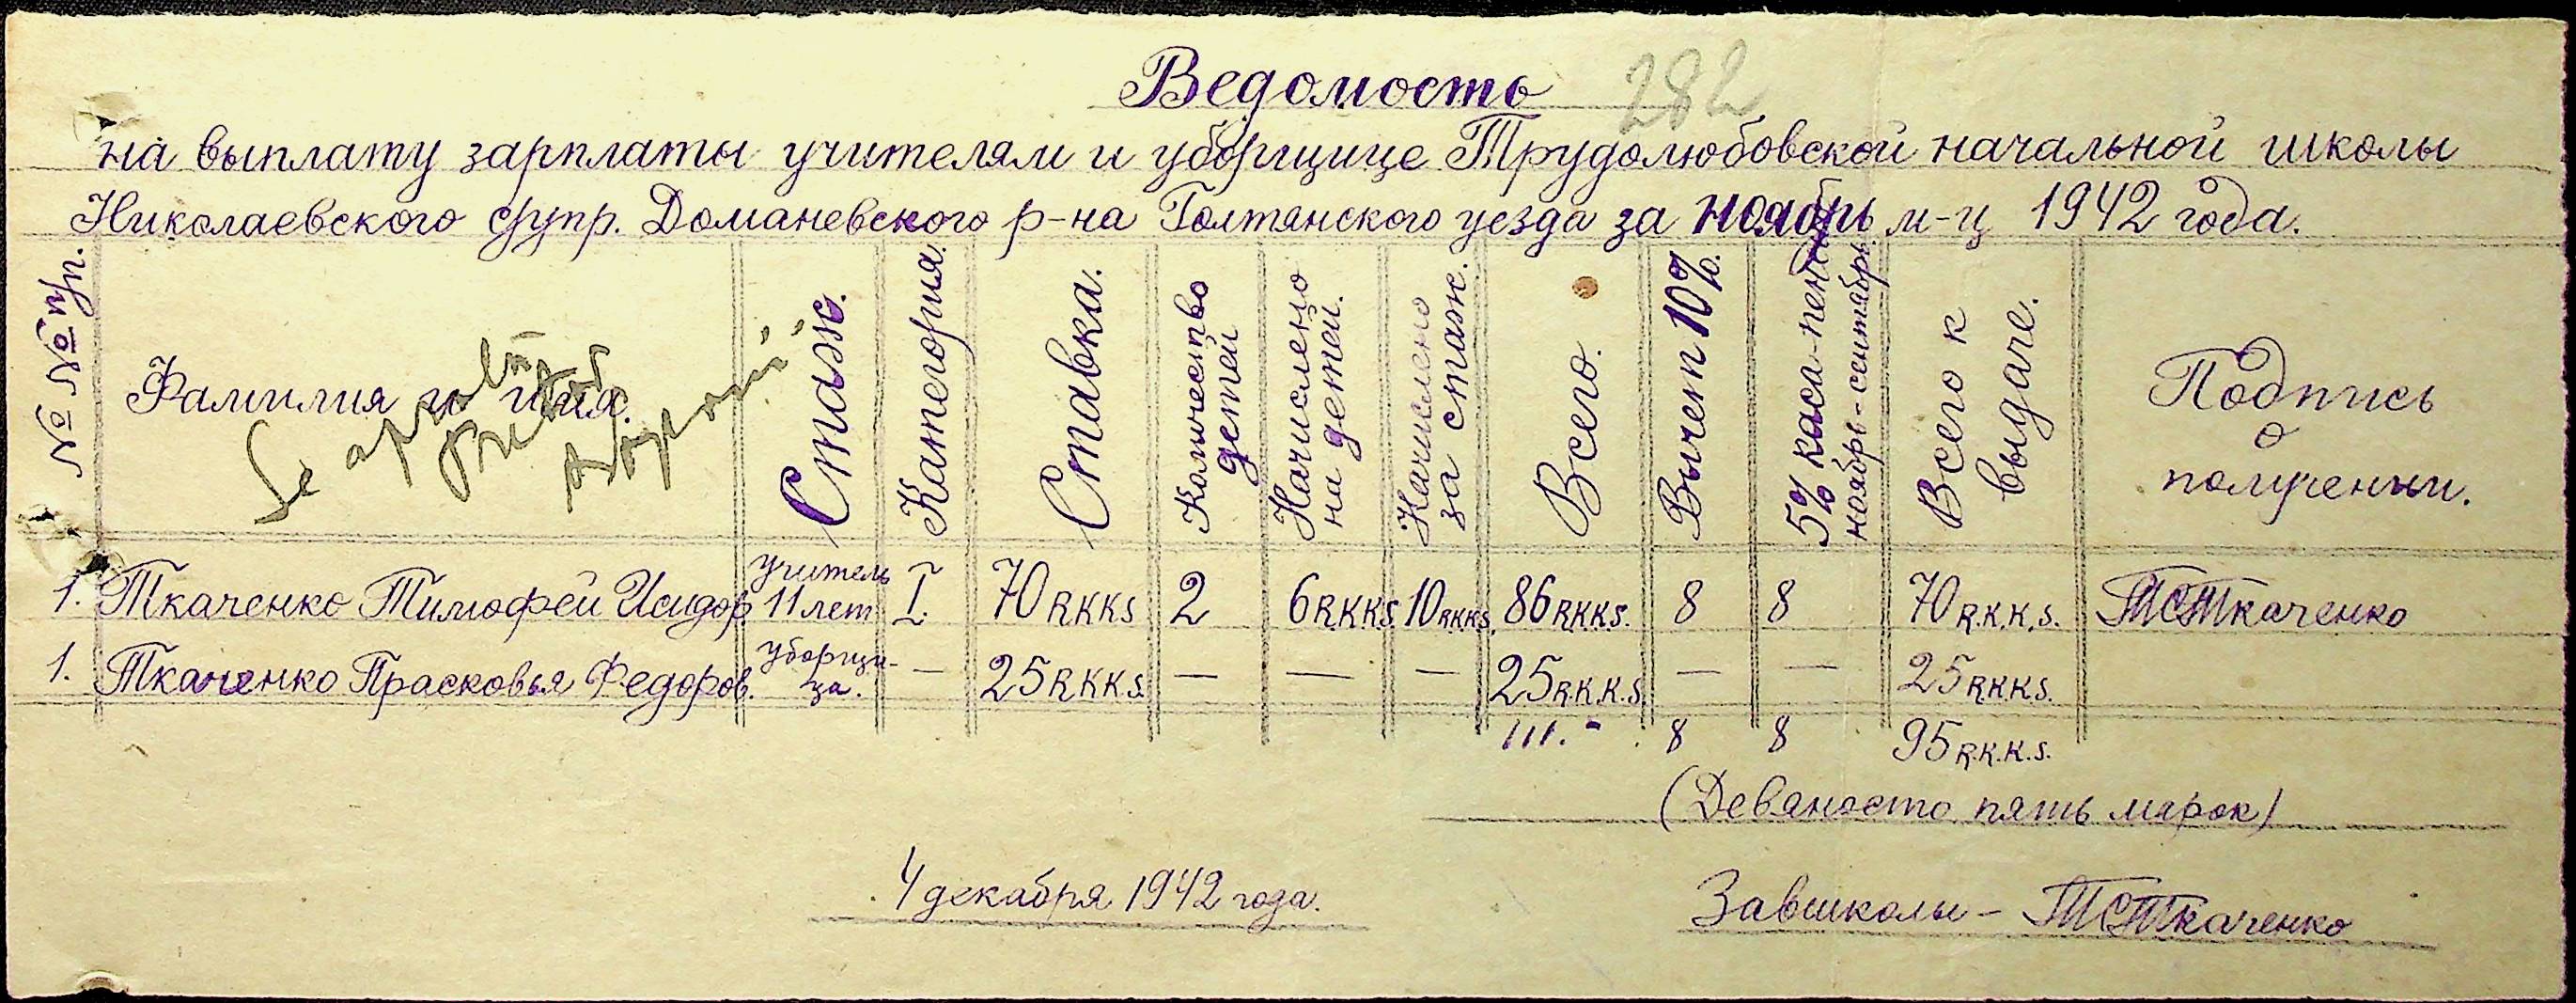 Ведомость 282
на выплату зарплаты учителям и уборщице Трудолюбовской начальной школы
Николаевского супр. Доманевского р-на Голтянского уезда за ноябрь м-ц 1942 года.
№№ п/п.
Фамилия и имя.
Se aprobă
Pretor
Стаж.
Категория.
Ставка.
Количество
детей
Начислено
на детей.
Начислено
за стаж.
Всего.
Вычет 10%.
5% каса-пенс
ноябрь-сентябрь
Всего к
выдаче.
Подпись
о
получении.
1. Ткаченко Тимофей Исидор. учитель 11 лет I. 70 RKKS 2 6 RKKS. 10 RKKS. 86 RKKS. 8 8 70 R.K.K.S. ТСТкаченко
1. Ткаченко Прасковья Федоров. уборщи-ца. — 25 RKKS. — — — 25 R.K.K.S. — — 25 R.K.K.S.
111.- 8 8 95 R.K.K.S.
(Девяносто пять марок)
4 декабря 1942 года.
Завшколы - ТСТкаченко